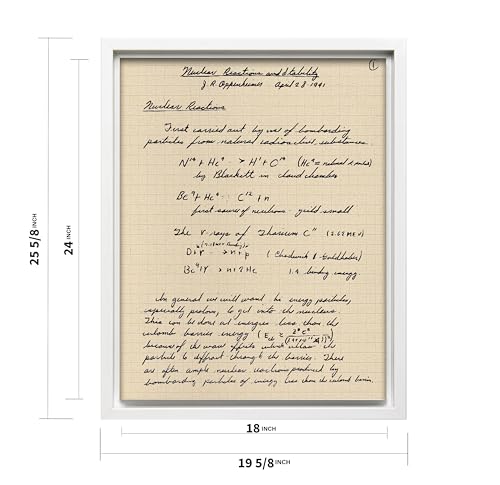 Nuclear Reactions and Stability
①
J. R. Oppenheimer April 28 1941
Nuclear Reactions
First carried out by use of bombarding
particles from natural radioactive substances.
N¹⁴ + He⁴ → H¹ + O¹⁸ (He⁴ = natural α and s)
by Blackett in cloud chamber
Be⁹ + He⁴ C¹² + n
first source of neutrons - yield small
The γ rays of Thorium C" (2.62 MEV)
D + γ → n + p (Chadwick & Goldhaber)
Be⁹ + γ → n + 2He 1.4 binding energy
In general we will want the energy particles,
especially protons, to get into the nucleus.
This can be done at energies less than the
coulomb barrier energy
because of the wave effects which allow the
particle to diffract through the barrier. There
are often ample nuclear reactions produced by
bombarding particles of energy less than the coulomb barrier.
25 5/8 INCH
24 INCH
18 INCH
19 5/8 INCH